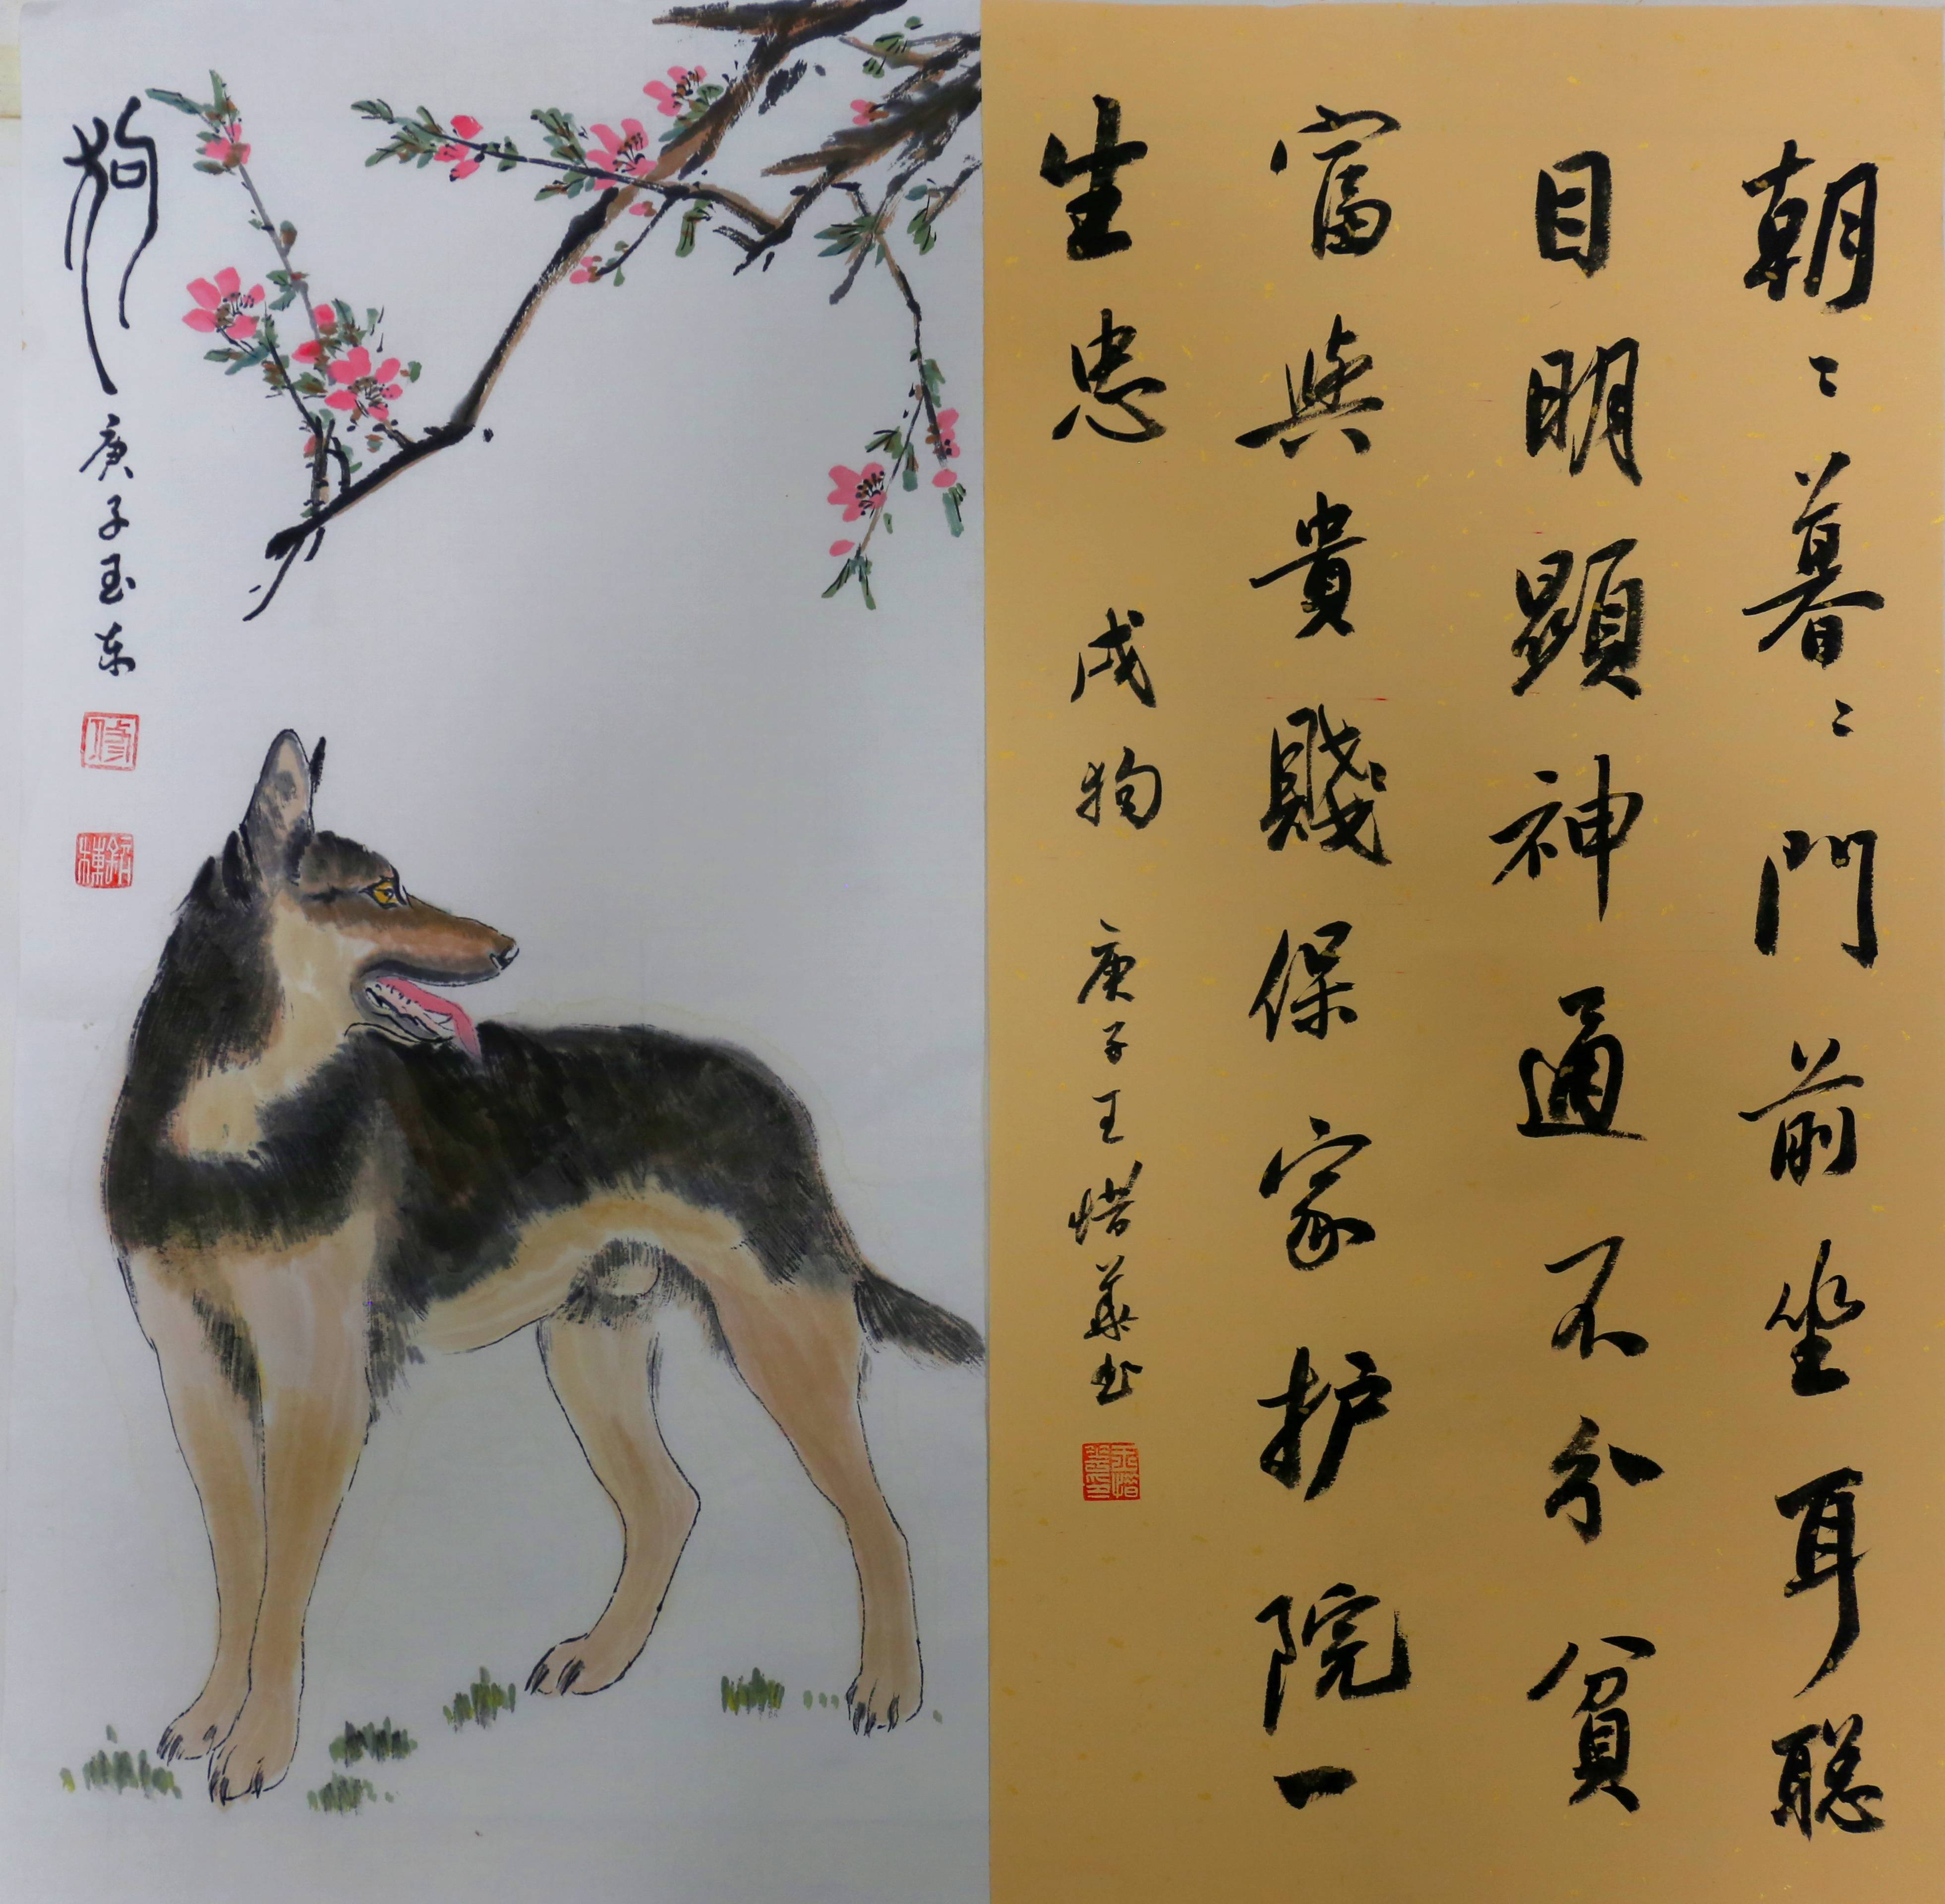 朝〻暮〻門前坐耳聪
目明顯神通不分貧
富與貴賤保家护院一
生忠
戌狗
庚子王惜華书
狗
庚子玉东